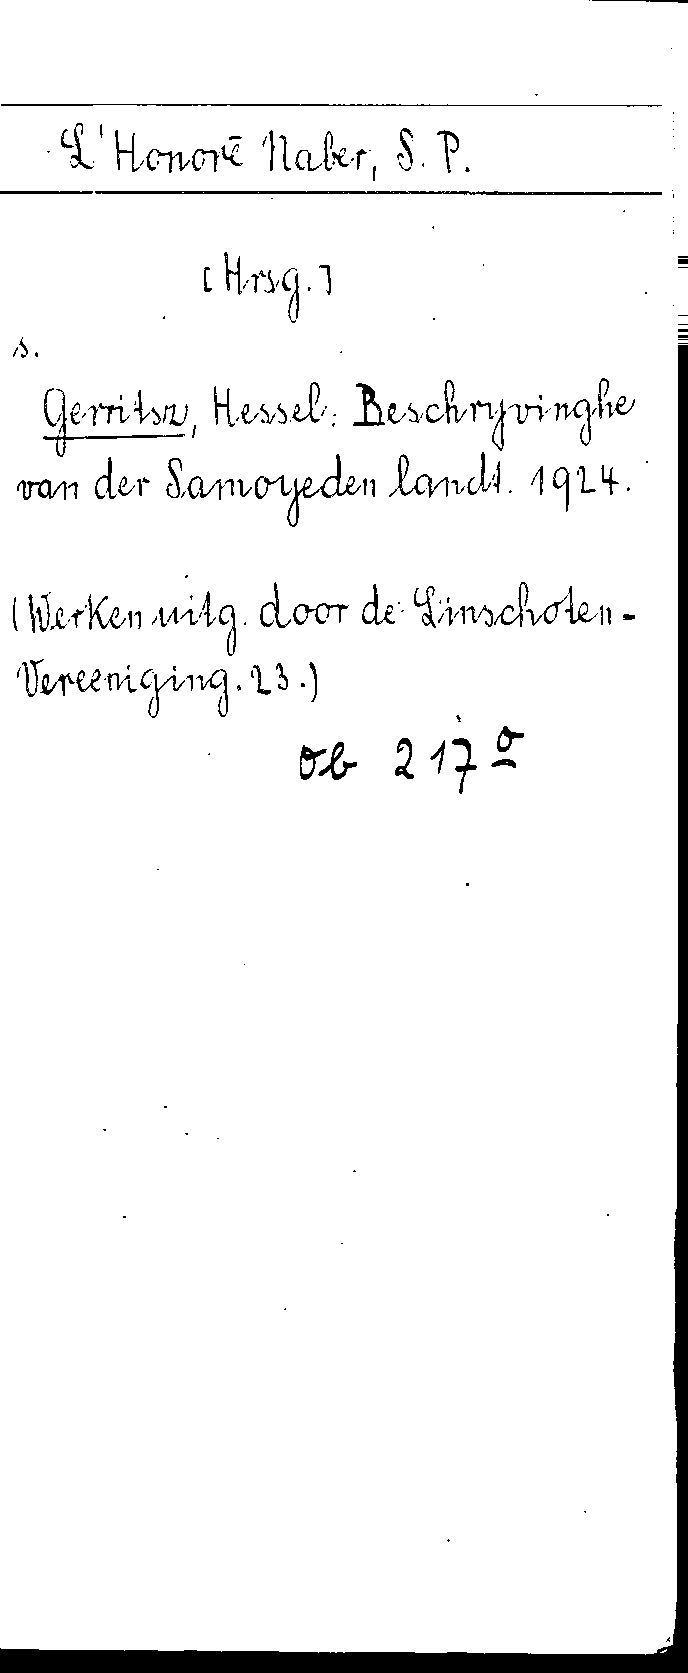 L'Honoré Naber, S. P.
[Hrsg.]
s.
Gerritsz, Hessel: Beschryvinghe
van der Samoyeden landt. 1924.
(Werken uitg. door de Linschoten-
Vereeniging. 23.)
Ob 217 º